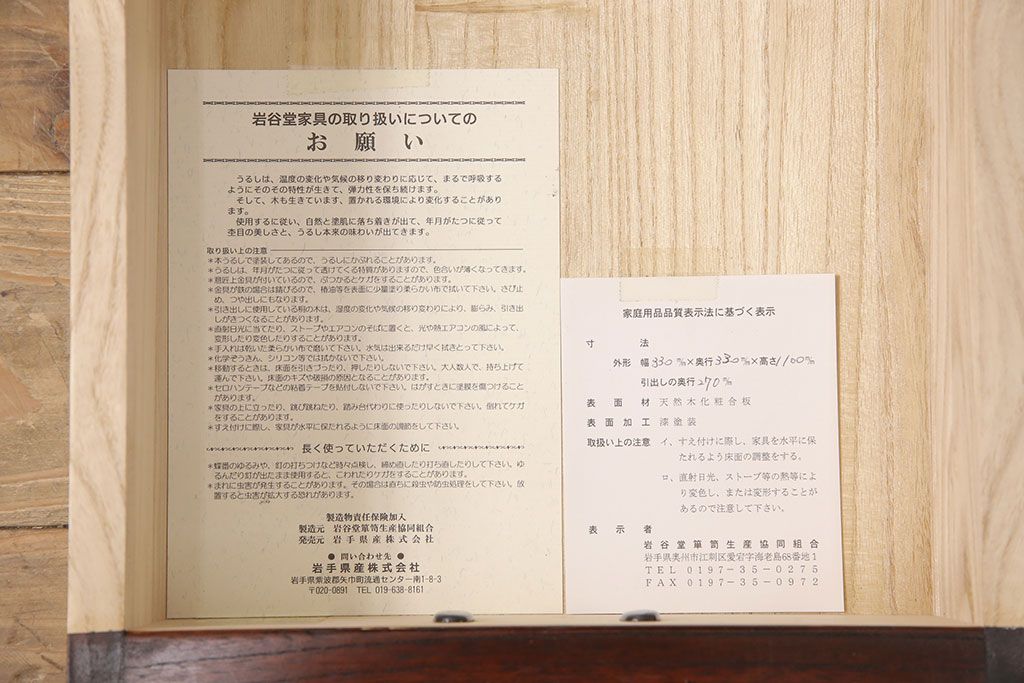 岩谷堂家具の取り扱いについての
お願い
うるしは、温度の変化や気候の移り変わりに応じて、まるで呼吸する
ようにそのその特性が生きて、弾力性を保ち続けます。
そして、木も生きています、置かれる環境により変化することがあり
ます。
使用するに従い、自然と塗肌に落ち着きが出て、年月がたつに従って
杢目の美しさと、うるし本来の味わいが出てきます。
取り扱い上の注意
＊本うるしで塗装してあるので、うるしにかぶれることがあります。
＊うるしは、年月がたつに従って透けてくる特質がありますので、色合いが薄くなってきます。
＊意匠上金具が付いているので、ぶつかるとケガをすることがあります。
＊金具が鉄の場合は錆びるので、椿油等を表面に少量塗り柔らかい布で拭いて下さい。さび止
め、つや出しにもなります。
＊引き出しに使用している桐の木は、湿度の変化や気候の移り変わりにより、膨らみ、引き出
しがきつくなることがあります。
＊直射日光に当てたり、ストーブやエアコンのそばに置くと、光や熱エアコンの風によって、
変形したり変色したりすることがあります。
＊手入れは乾いた柔らかい布で磨いて下さい。水気は出来るだけ早く拭きとって下さい。
＊化学ぞうきん、シリコン等では拭かないで下さい。
＊移動するときは、床面を引きづったり、押したりしないで下さい。大人数人で、持ち上げて
運んで下さい。床面のキズや破損の原因となることがあります。
＊セロハンテープなどの粘着テープを貼付しないで下さい。はがすときに塗膜を傷つけること
があります。
＊家具の上に立ったり、跳び跳ねたり、踏み台代わりに使ったりしないで下さい。倒れてケガ
をすることがあります。
＊すえ付けに際し、家具が水平に保たれるように床面の調節をして下さい。
長く使っていただくために
＊蝶番のゆるみや、釘の打ちつけなど時々点検し、締め直したり打ち直したりして下さい。ゆ
るんだり釘が出たまま使用すると、こわれたりケガをすることがあります。
＊まれに虫害が発生することがあります。その場合は直ちに殺虫や防虫処理をして下さい。放
置すると虫害が拡大する恐れがあります。
製造物責任保険加入
製造元 岩谷堂箪笥生産協同組合
発売元 岩手県産株式会社
● 問い合わせ先 ●
岩手県産株式会社
岩手県紫波郡矢巾町流通センター南1-8-3
〒020-0891 TEL 019-638-8161
家庭用品品質表示法に基づく表示
寸法
外形 幅 330㎜×奥行330㎜×高さ1100㎜
引出しの奥行270㎜
表面材 天然木化粧合板
表面加工 漆塗装
取扱い上の注意 イ、すえ付けに際し、家具を水平に保
たれるよう床面の調整をする。
ロ、直射日光、ストーブ等の熱等によ
り変色し、または変形することが
あるので注意して下さい。
表示者
岩谷堂箪笥生産協同組合
岩手県奥州市江刺区愛宕字海老島68番地1
TEL 0197-35-0275
FAX 0197-35-0972